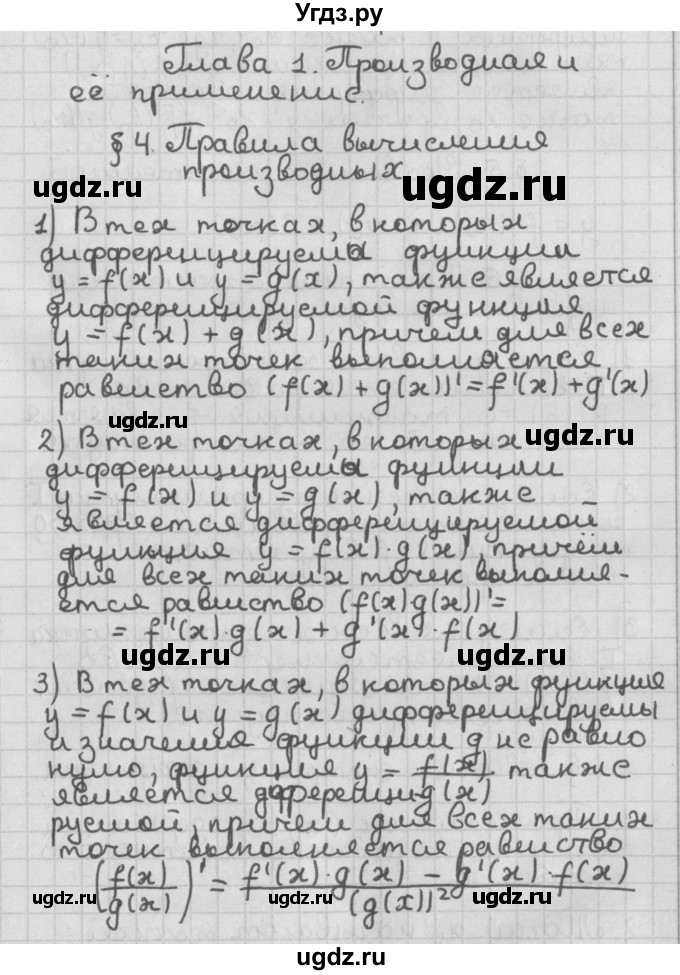 Угдз.ру
Глава 1. Производная и
её применение.
§ 4. Правила вычисления
производных
ugdz.ru ugdz.ru
1) В тех точках, в которых
дифференцируемы функции
y = f(x) и y = g(x), также является
дифференцируемой функция
y = f(x) + g(x), причем для всех
таких точек выполняется
равенство (f(x) + g(x))' = f'(x) + g'(x)
ugdz.ru
2) В тех точках, в которых ugdz.ru
дифференцируемы функции
y = f(x) и y = g(x), также
является дифференцируемой
функция y = f(x)·g(x), причём
для всех таких точек выполня-
ется равенство (f(x)g(x))' =
= f'(x)·g(x) + g'(x)·f(x)
ugdz.ru ugdz.ru
3) В тех точках, в которых функция
y = f(x) и y = g(x) дифференцируемы
и значения функции g не равно
нулю, функция y = f(x)/g(x) также
является дфференци-
руемой, причем для всех таких
точек выполняется равенство
(f(x)/g(x))' = (f'(x)·g(x) - g'(x)·f(x))/(g(x))²
ugdz.ru ugdz.ru ugdz.ru
ugdz.ru